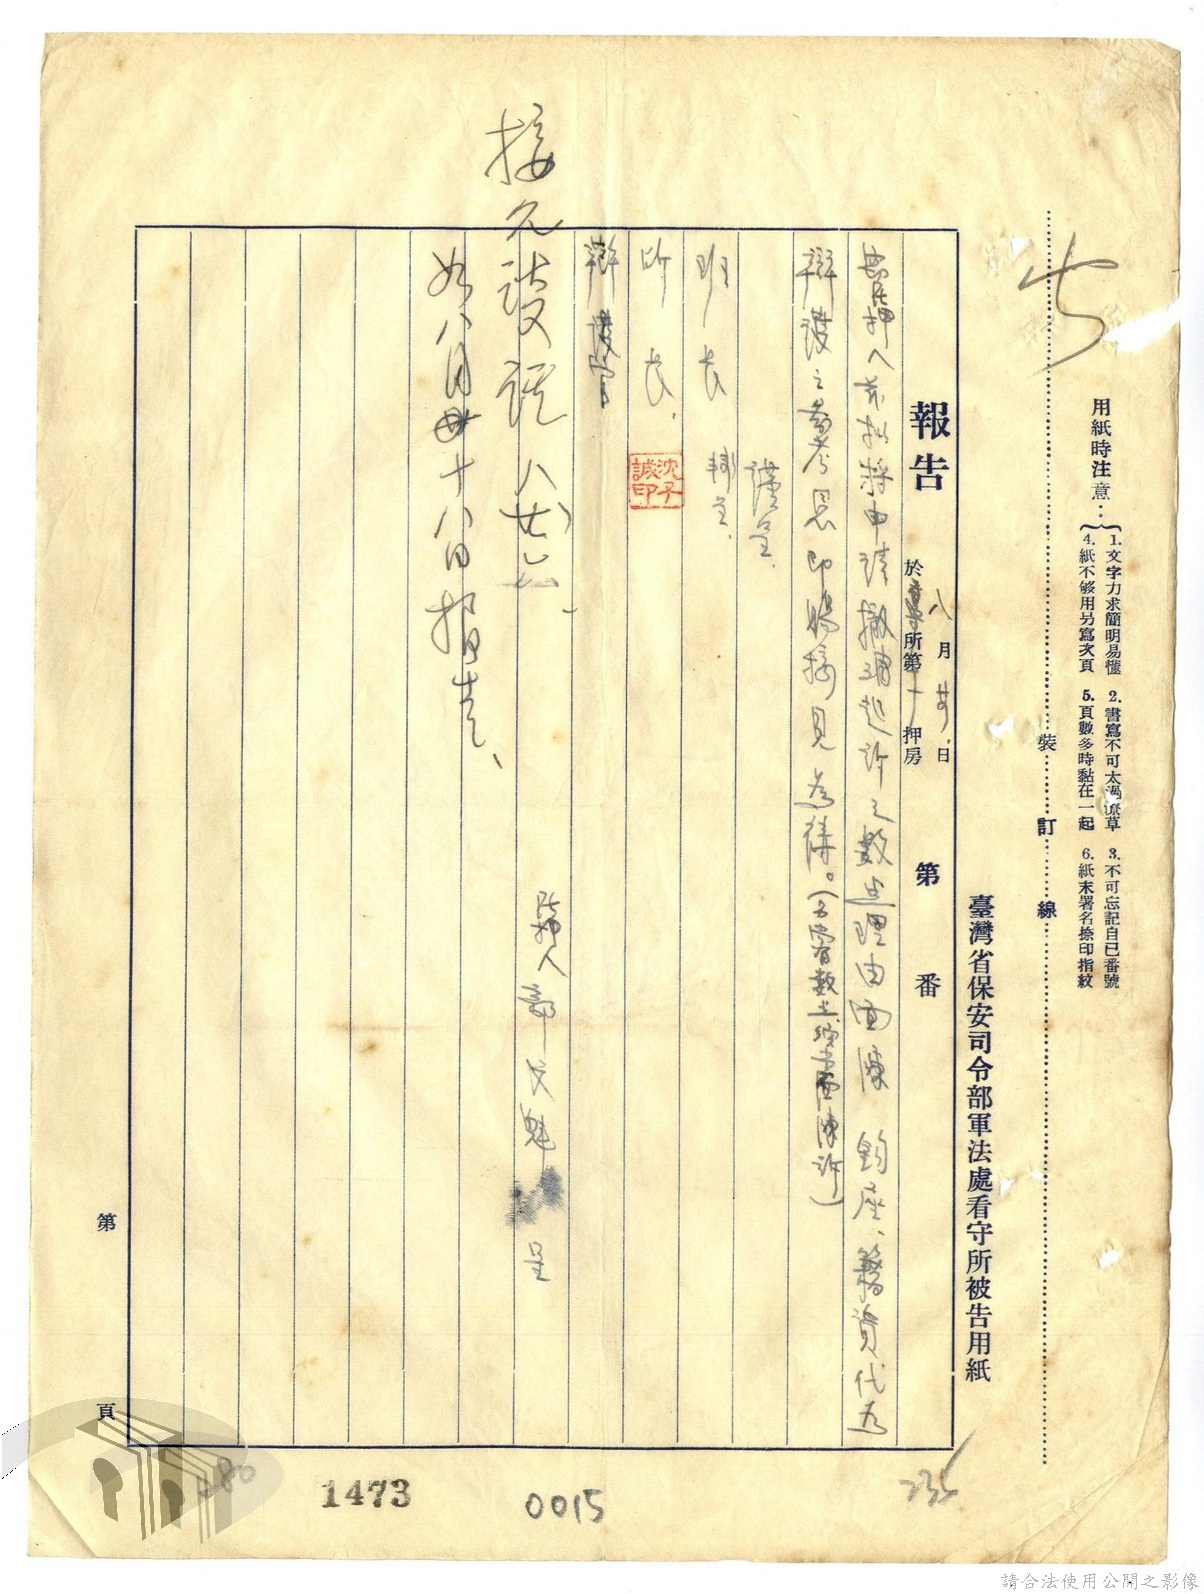 七
用紙時注意：
1.文字力求簡明易懂 2.書寫不可太過潦草 3.不可忘記自已番號
4.紙不够用另寫次頁 5.頁數多時黏在一起 6.紙末署名捺印指紋
裝 訂 線
臺灣省保安司令部軍法處看守所被告用紙
報告 八月廿日 第 番
於 所第 押房
押人茲擬將申請撤 起訴之數点理由面陳 鈞座、藉資代為
辯護之參考 即賜接見為禱。
謹呈
班長 轉呈
所長
沈子誠印
辯護官
在押人 郭文魁 呈
接允談話 八
如八月 十八日報告、
第 頁
280
1473
0015
235
請合法使用公開之影像